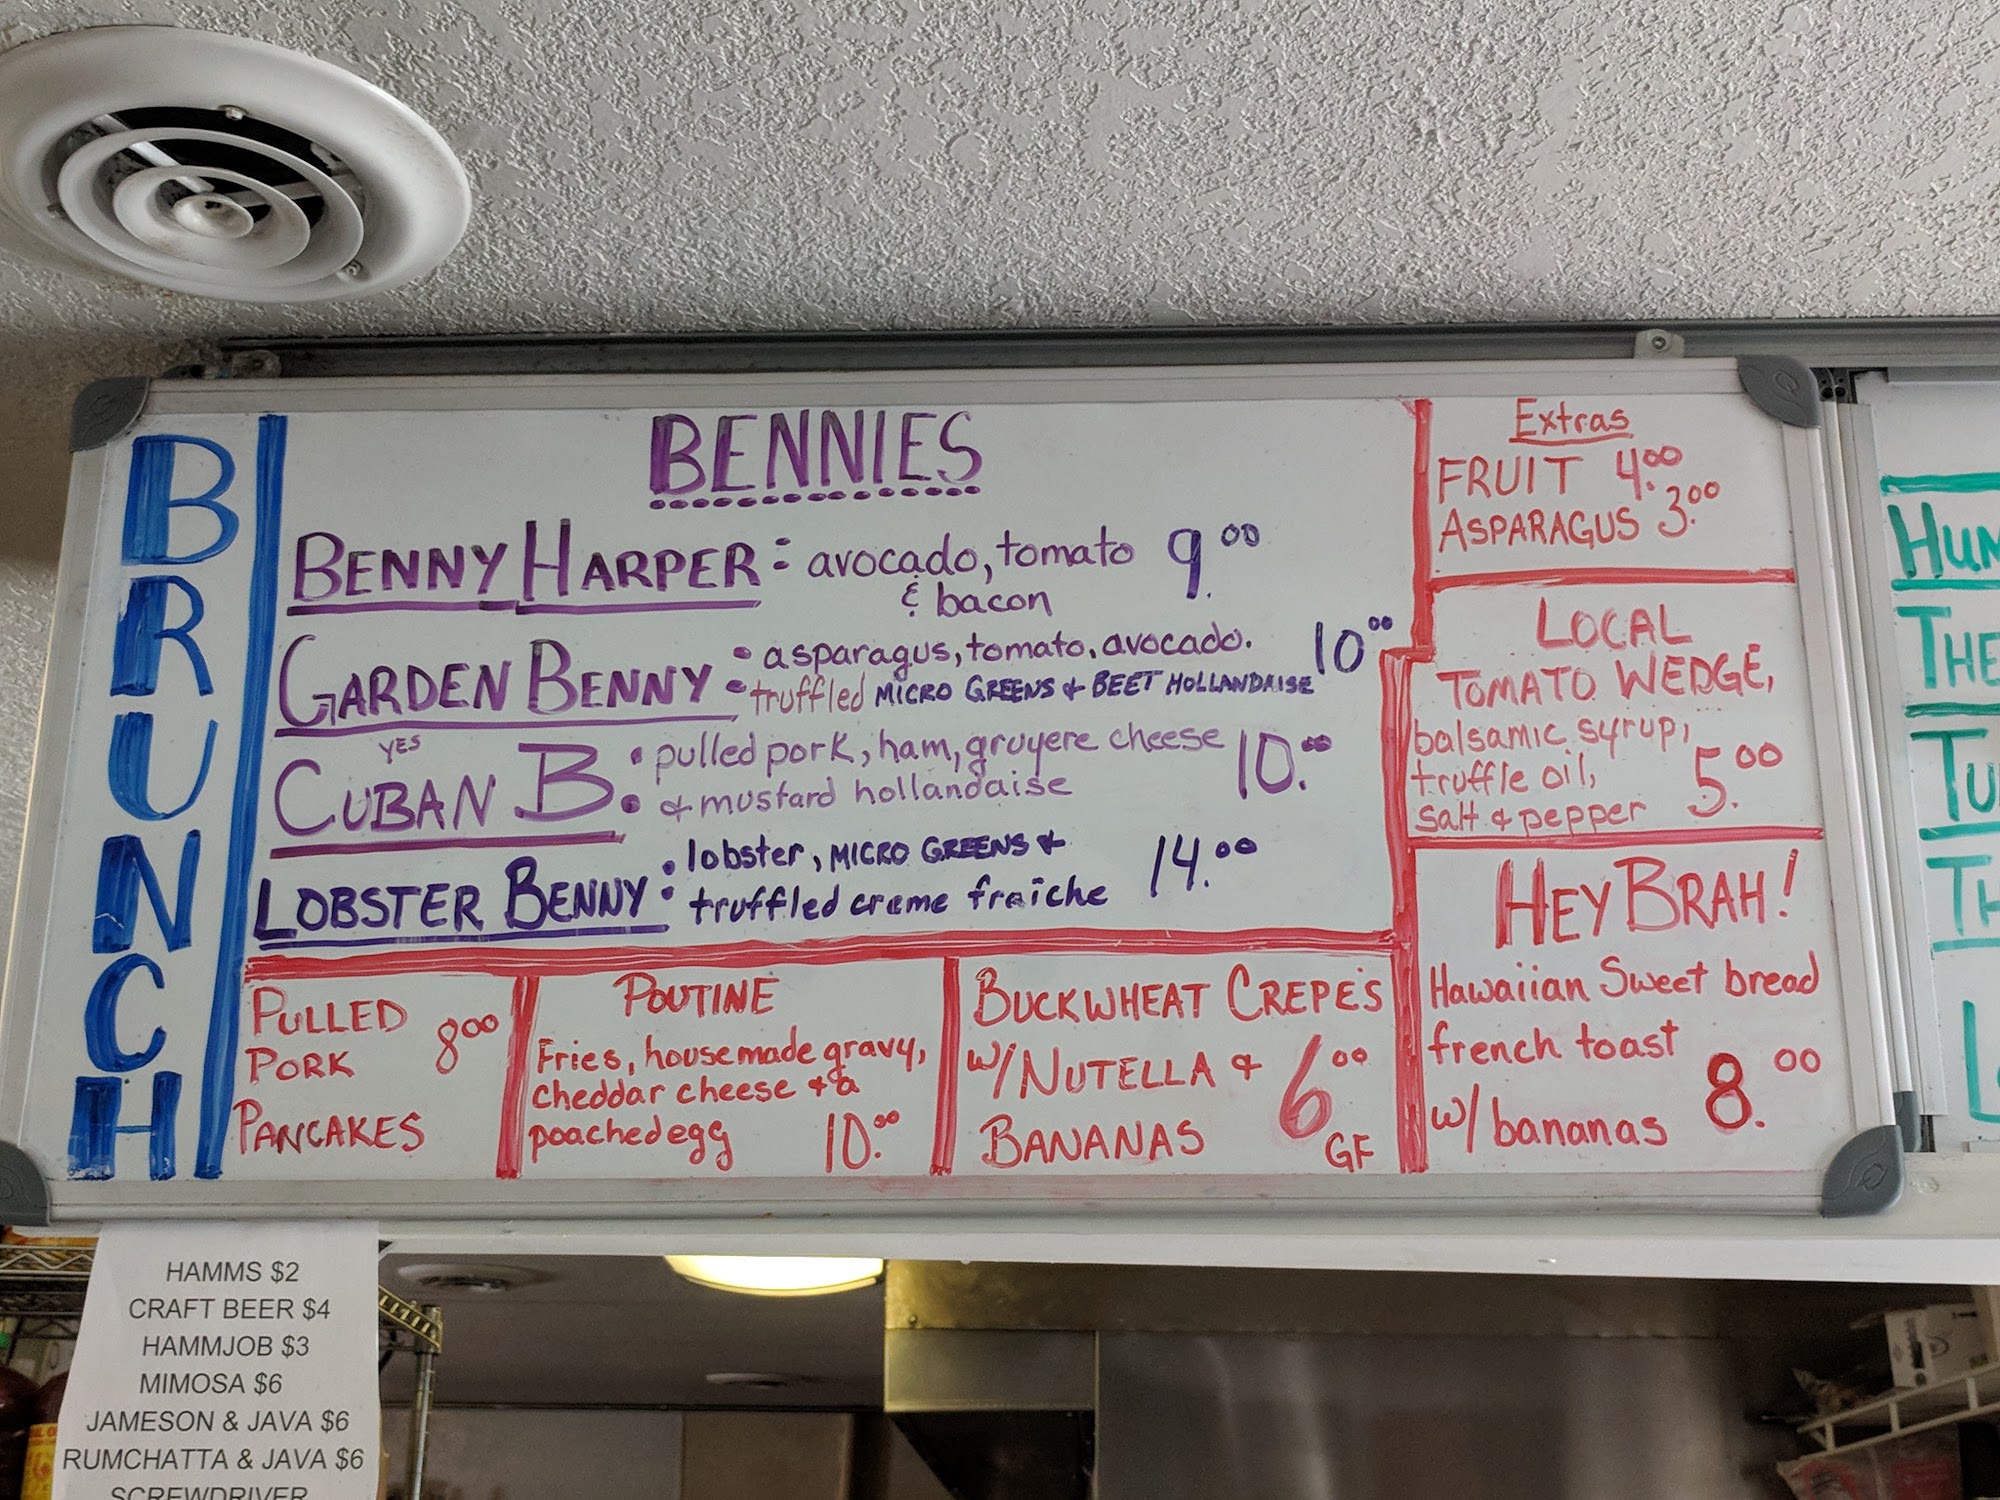 BRUNCH
BENNIES
BENNY HARPER: avocado, tomato 9.00
& bacon
GARDEN BENNY: asparagus, tomato, avocado. 10.00
truffled MICRO GREENS & BEET HOLLANDAISE
YES
CUBAN B.: pulled pork, ham, gruyere cheese 10.00
& mustard hollandaise
LOBSTER BENNY: lobster, MICRO GREENS & 14.00
truffled creme fraiche
Extras
FRUIT 4.00
ASPARAGUS 3.00
LOCAL
TOMATO WEDGE,
balsamic syrup,
truffle oil, 5.00
salt & pepper
HEY BRAH!
Hawaiian Sweet bread
french toast
w/ bananas 8.00
PULLED
PORK 8.00
PANCAKES
POUTINE
Fries, housemade gravy,
cheddar cheese & a
poached egg 10.00
BUCKWHEAT CREPE'S
w/ NUTELLA & 6.00
BANANAS GF
HAMMS $2
CRAFT BEER $4
HAMMJOB $3
MIMOSA $6
JAMESON & JAVA $6
RUMCHATTA & JAVA $6
SCREWDRIVER
HUM
THE
TU
TH
L